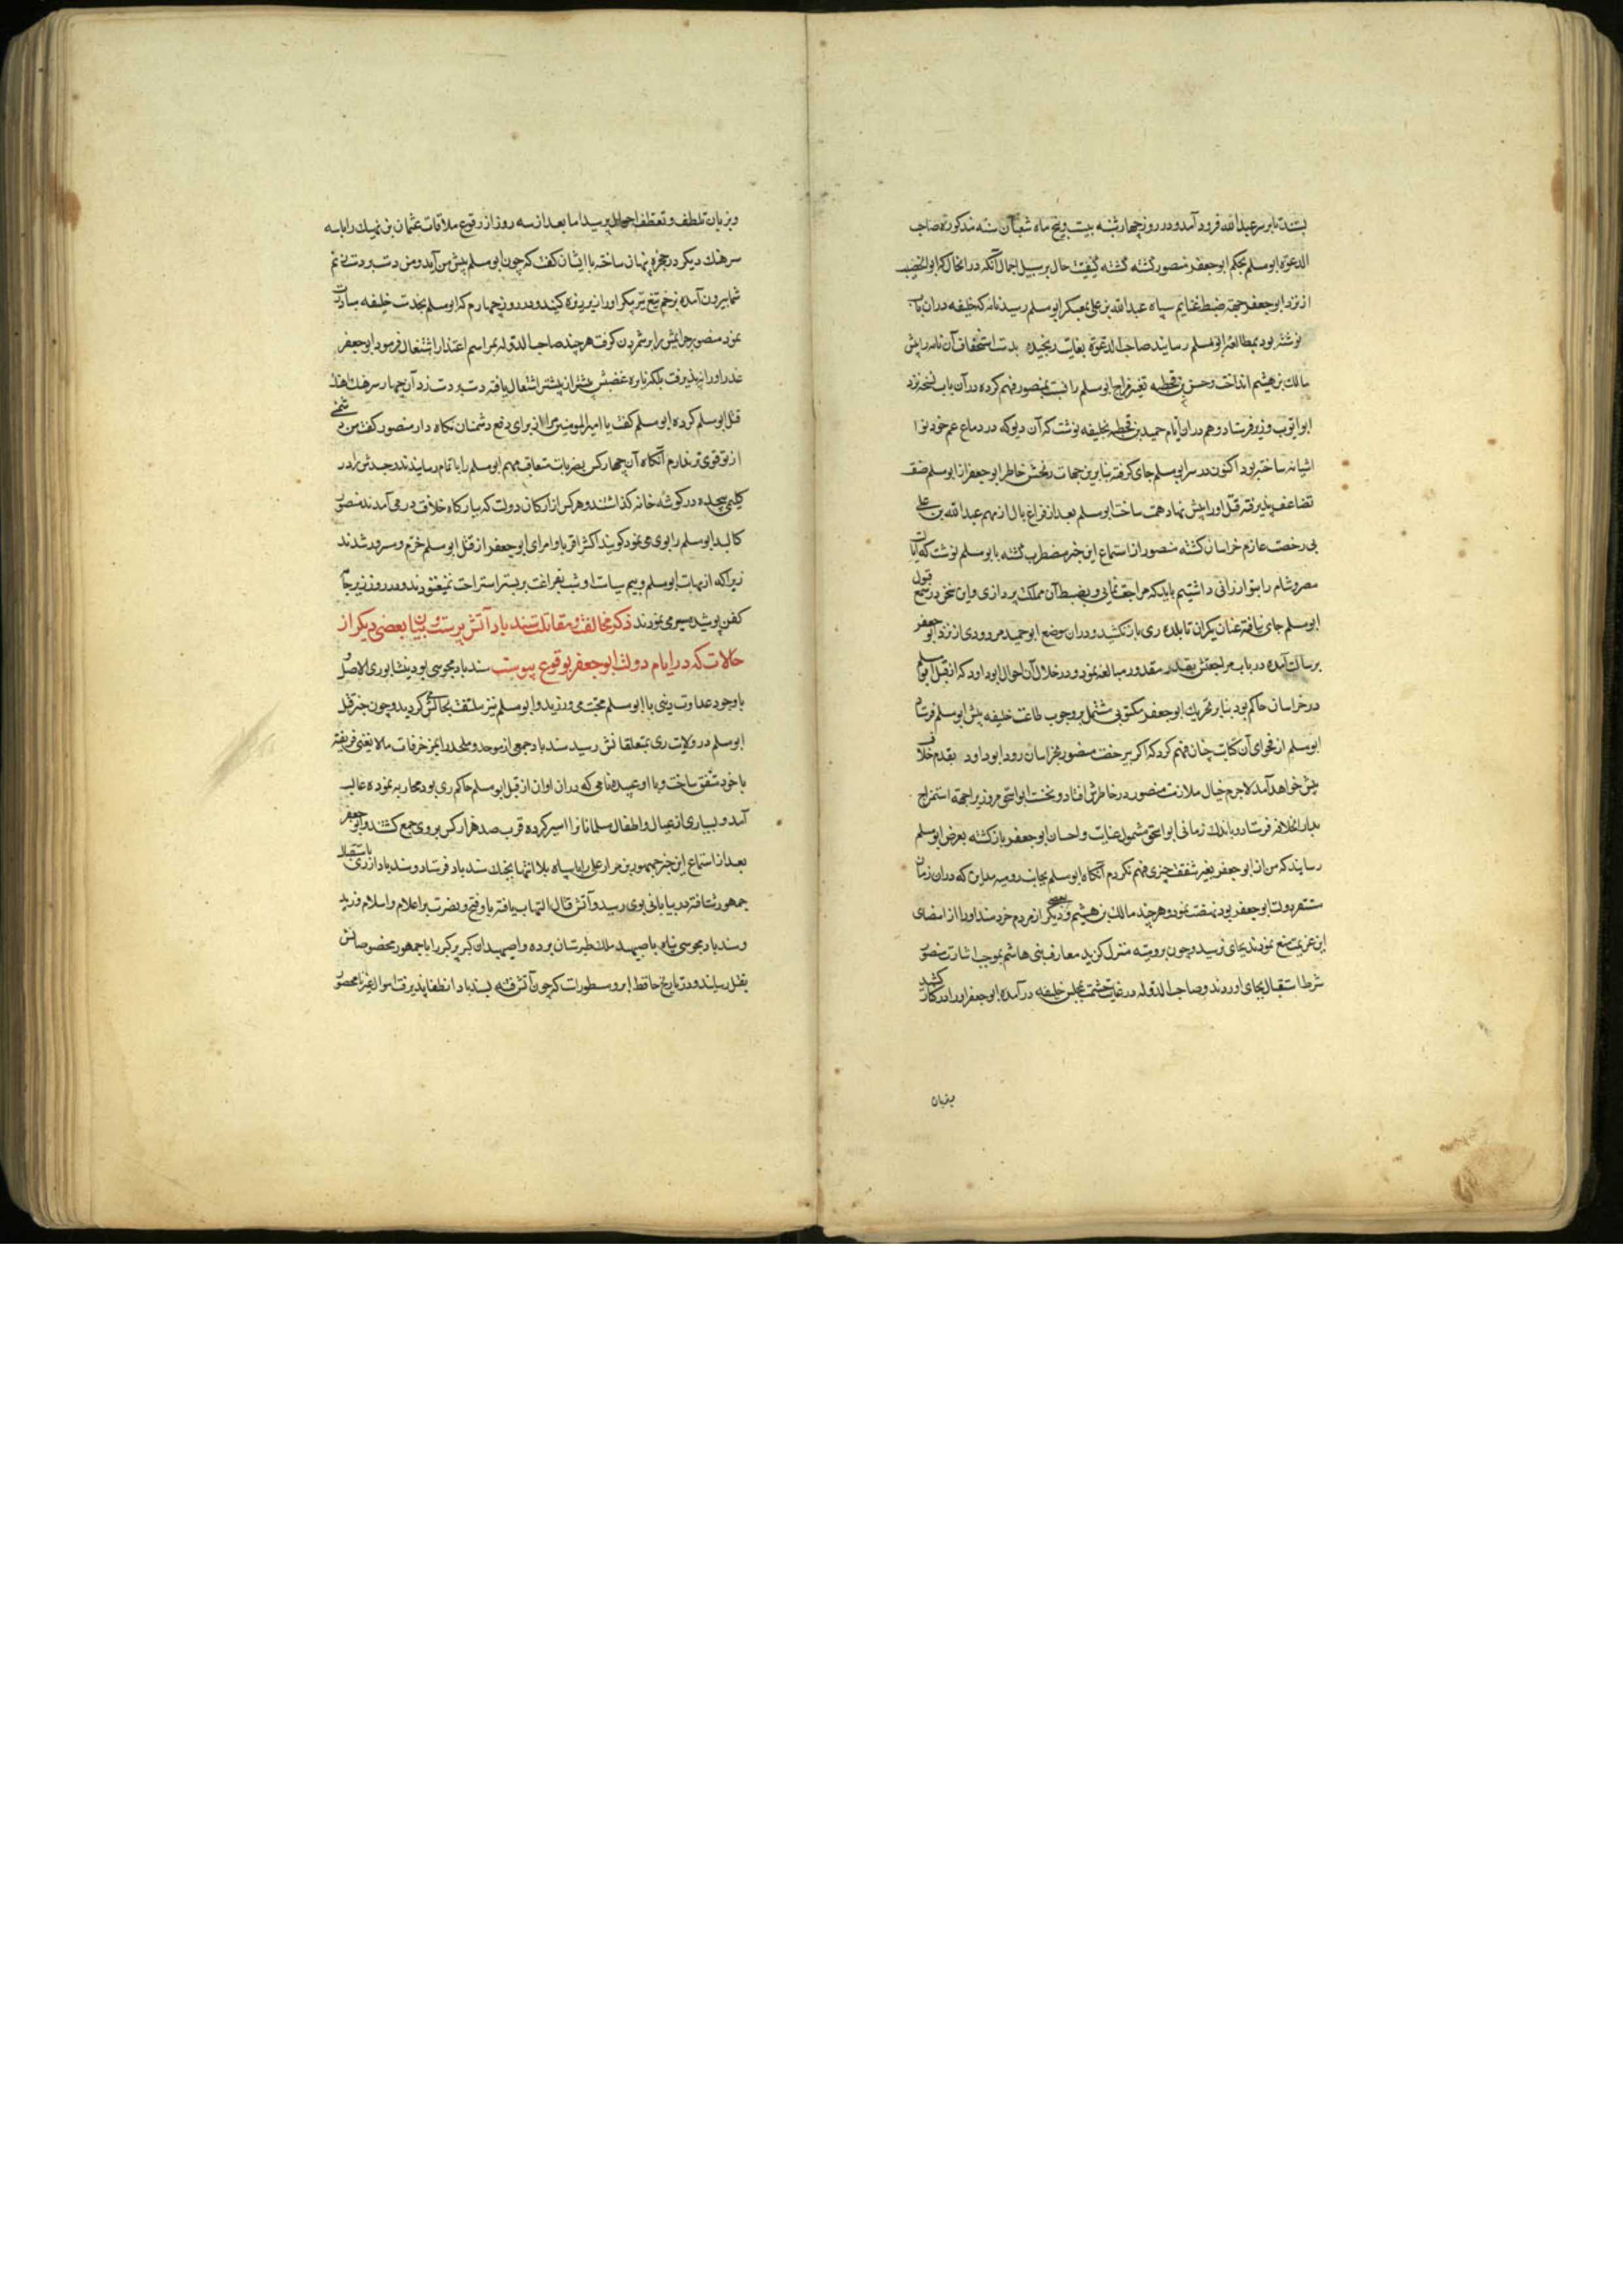 بستند تا بر سر عبدالله فرود آمد و در روز چهارشنبه بیست و پنج ماه شعبان سنه مذکوره صاحب
الدعوة ابو مسلم بحکم ابو جعفر منصور کشته کشته کیفیت حال بر سبیل اجمال آنکه در انحال که ابو الخصیب
از نزد ابو جعفر جهة ضبط غنایم سپاه عبدالله بن علی بمعسکر ابو مسلم رسید نامه که خلیفه دران باب
نوشته بود بمطالعه ابو مسلم رسانید صاحب الدعوة بغایت رنجیده بدست استخفاف آن نامه را پیش
مالک بن هیثم انداخت و حسن بن قحطبه تغیر مزاج ابو مسلم را نسبت بمنصور فهم کرده در آن باب نسخه نزد
ابو ایوب وزیر فرستاد و هم دران ایام حمید بن قحطبه بخلیفه نوشت که آن دیو که در دماغ عم خود نوا
اشیانه ساخته بود اکنون در سر ابو مسلم جای کرفته بنابرین جهات رنجش خاطر ابو جعفر از ابو مسلم صفت
تضاعف پذیرفته قتل او را پیش نهاد همت ساخت ابو مسلم بعد از فراغ بال از مهم عبدالله بن علی
بی رخصت عازم خراسان کشته منصور از استماع این خبر مضطرب کشته بابو مسلم نوشت که ایالت
مصر و شام را بتو ارزانی داشتیم باید که مراجعت نمایی و بضبط آن مملکت پردازی و این سخن در سمع قبول
ابو مسلم جای نیافته عنان یکران تا بلده ری باز نکشید و دران موضع ابو حمید مرورودی از نزد ابو جعفر
برسالت آمده در باب مراجعتش بقدر مقدور مبالغه نمود و در خلال آن احوال ابو داود که از قبل ابو مسلم
در خراسان حاکم بود بنابر تحریک ابو جعفر مکتوبی مشتمل بر وجوب طاعت خلیفه پیش ابو مسلم فرستاد
ابو مسلم از فحوای آن کتابت چنان فهم کرد که اکر بی رخصت منصور بخراسان رود ابو داود بقدم خلاف
پیش خواهد آمد لاجرم خیال ملازمت منصور در خاطرش افتاد و نخست ابو اسحق مروزی را جهة استمزاج
بدار الخلافه فرستاد و باندک زمانی ابو اسحق مشمول عنایت و احسان ابو جعفر باز کشته بعرض ابو مسلم
رسانید که من از ابو جعفر بغیر شفقت چیزی فهم نکردم آنکاه ابو مسلم بجانب رومیه مداین که دران زمان
مستقر دولت ابو جعفر بود نهضت نمود و هر چند مالک بن هیثم و بعضی دیکر از مردم خردمند او را از امضای
این عزیمت منع نمودند بجای نرسید و چون برومیه منزل کزید معارف بنی هاشم بموجب اشارت منصور
شرط استقبال بجای آوردند و صاحب الدوله در غایت حشمت بمجلس خلیفه در آمده ابو جعفر او را در کنار کشید
بزبان
و بزبان تلطف و تعطف احوال پرسید اما بعد از سه روز از وقوع ملاقات عثمان بن نهیک را با سه
سرهنک دیکر در حجره پنهان ساخته با ایشان کفت که چون ابو مسلم پیش من آید و من دست بر دست زنم
شما بیرون آمده بزخم تیغ تیز پیکر او را ریز ریزه کنید و در روز چهارم که ابو مسلم بخدمت خلیفه مبادرت
نمود منصور جرایمش را بر شمردن کرفت هر چند صاحب الدوله بمراسم اعتذار اشتغال فرمود ابو جعفر
عذر او را نپذیرفت بلکه نایره غضبش بیشتر از پیشتر اشتعال یافته دست بر دست زد آن چهار سرهنک آهنک
قتل ابو مسلم کرده ابو مسلم کفت یا امیرالمومنین مرا از برای دفع دشمنان نکاه دار منصور کفت من دشمنی
از تو قوی تر ندارم آنکاه آن چهار کس بضربات متعاقب مهم ابو مسلم را باتمام رسانیدند و جسدش را در
کلیمی پیچیده در کوشه خانه کذاشتند و هر کس از ارکان دولت که ببارکاه خلافت در می آمدند منصور
کالبد ابو مسلم را بوی می نمود کویند اکثر اقربا و امرای ابو جعفر از قتل ابو مسلم خرم و مسرور شدند
زیرا که از مهابت ابو مسلم و بیم سیاست او شب بفراغت بر بستر استراحت نمیغنودند و در روز زیر جامه
کفن پوشیده سیر می نمودند ذکر مخالفت و مقاتلت سندباد آتش پرست و بیان بعضی دیکر از
حالات که در ایام دولت ابو جعفر بوقوع پیوست سندباد مجوسی بود نیشابوری الاصل و
با وجود عداوت دینی با ابو مسلم محبت می ورزید و ابو مسلم نیز ملتفت بحالش کردید و چون خبر قتل
ابو مسلم در ولایت ری بمتعلقانش رسید سندباد جمعی از موحد و ملحد را بمزخرفات مالا یعنی فریفته
با خود متفق ساخت و با ابو عبیده نامی که دران اوان از قبل ابو مسلم حاکم ری بود محاربه نموده غالب
آمد و بسیاری از عیال و اطفال مسلمانان را اسیر کرده قرب صد هزار کس بروی جمع کشتند و ابو جعفر
بعد از استماع این خبر جمهور بن مرار عجلی را با سپاه بلا انتها بجنک سندباد فرستاد و سندباد از ری باستقبال
جمهور شتافته در بیابانی بوی رسید و آتش قتال التهاب یافته باد فتح و نصرت بر اعلام اسلام وزید
و سندباد مجوسی پناه باصپهبد ملک طبرستان برده و اصپهبد آن کبر پر کبر را با جمهور مخصوصانش
بقتل رسانید و در تاریخ حافظ ابرو مسطورست که چون آتش فتنه سندباد انطفا پذیرفت اموال